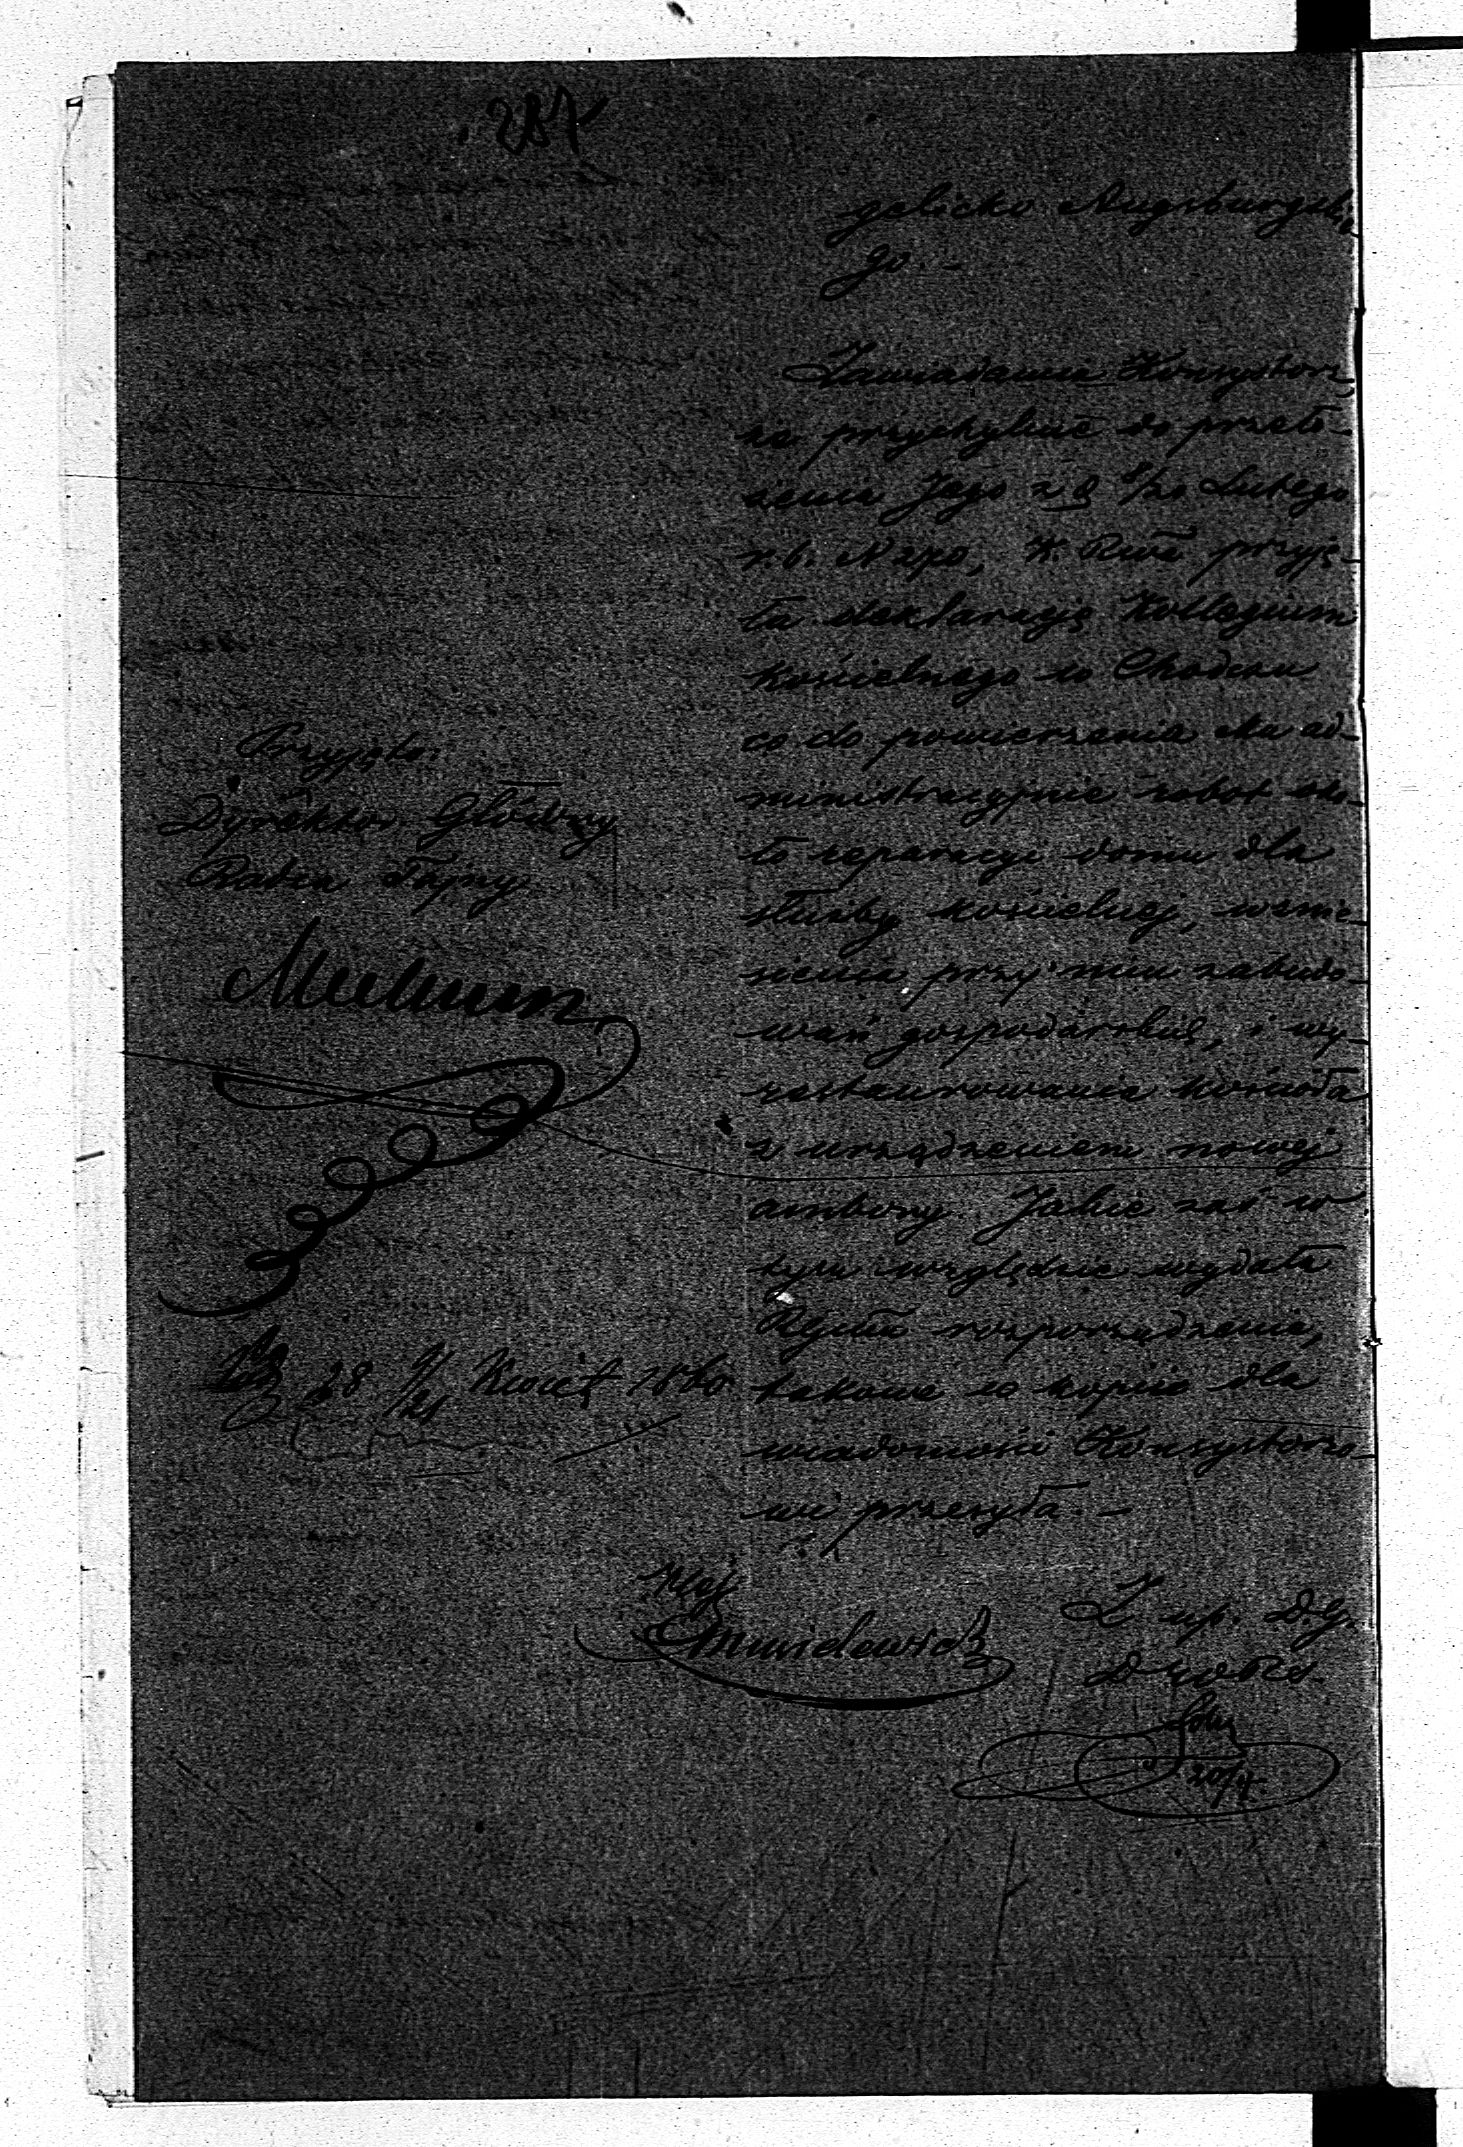 287
gelicko Augsburgskie-
go.-
Zawiadamia Konsystorz,
że przychylnie do przeło-
żenia Jego z d 8/20 Lutego
r.b. N 270, K. Rwa przyję-
ła deklaracyę Kollegium
Kościelnego w Chodczu
co do powierzenia Mu ad-
ministracyjnie robót oko-
ło reparacyi domu dla
służby kościelnej, wznie-
sienia przy nim zabudo-
wań gospodarskich, i wy-
restaurowania kościoła
z urządzeniem nowej
ambony. Jakie zaś w
tym względzie wydała
rozporządzenie,
takowe w kopii dla
wiadomości Konsystorzo-
wi przesyła.-
Przyjęto.
Dyrektor Główny
Radca Tajny
28 9/21 Kwiet
Z up. DG.
20/4